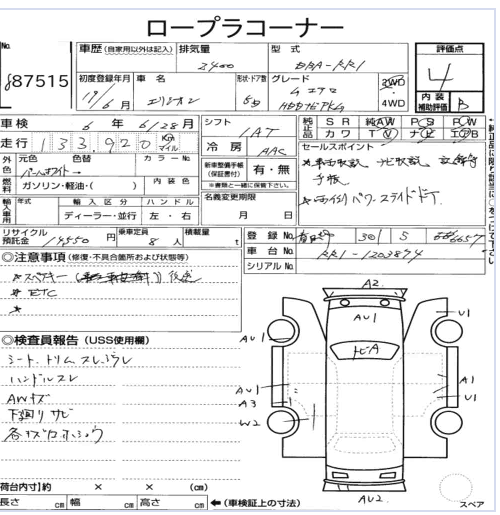 ロープラコーナー
No. 87515
車歴 (自家用以外は記入) 排気量 2400 型式 DBA-RR1 評価点 4
初度登録年月 19/6月 車名 エリシオン 形状・ドア数 5D グレード G エアロ HDDナビPKG 2WD 4WD 内装補助評価 B
車検 6年 6/28月 シフト IAT 純正品 SR 純AW PS PW
走行 133,920 km マイル 冷房 AAC カワ TV ナビ エアB
外色 元色 色替 パールホワイト→ カラーNo. 新車整備手帳(保証書付) 有・無 ※書類と一緒に保管下さい。
セールスポイント
燃料 ガソリン・軽油・( ) 内装色 手帳.
輸入車用 年式 輸入区分 ディーラー・並行 ハンドル 左・右 名義変更期限 月 日
リサイクル預託金 円 乗車定員 8人 積載量 t
登録No. 301 S
車台No. RR1-1203894
シリアルNo.
◎注意事項 (修復・不具合箇所および状態等)
* スペアキー
* ETC
*
◎検査員報告 (USS使用欄)
シート.トリム スレ.
ハンドルスレ
AWキズ
下廻リサビ
A2
AU1
U1
AU1
AU1
A3
W2
A1
U1
AU2
スペア
荷台内寸)約 × × (cm)
長さ cm 幅 cm 高さ cm ←(車検証上の寸法)